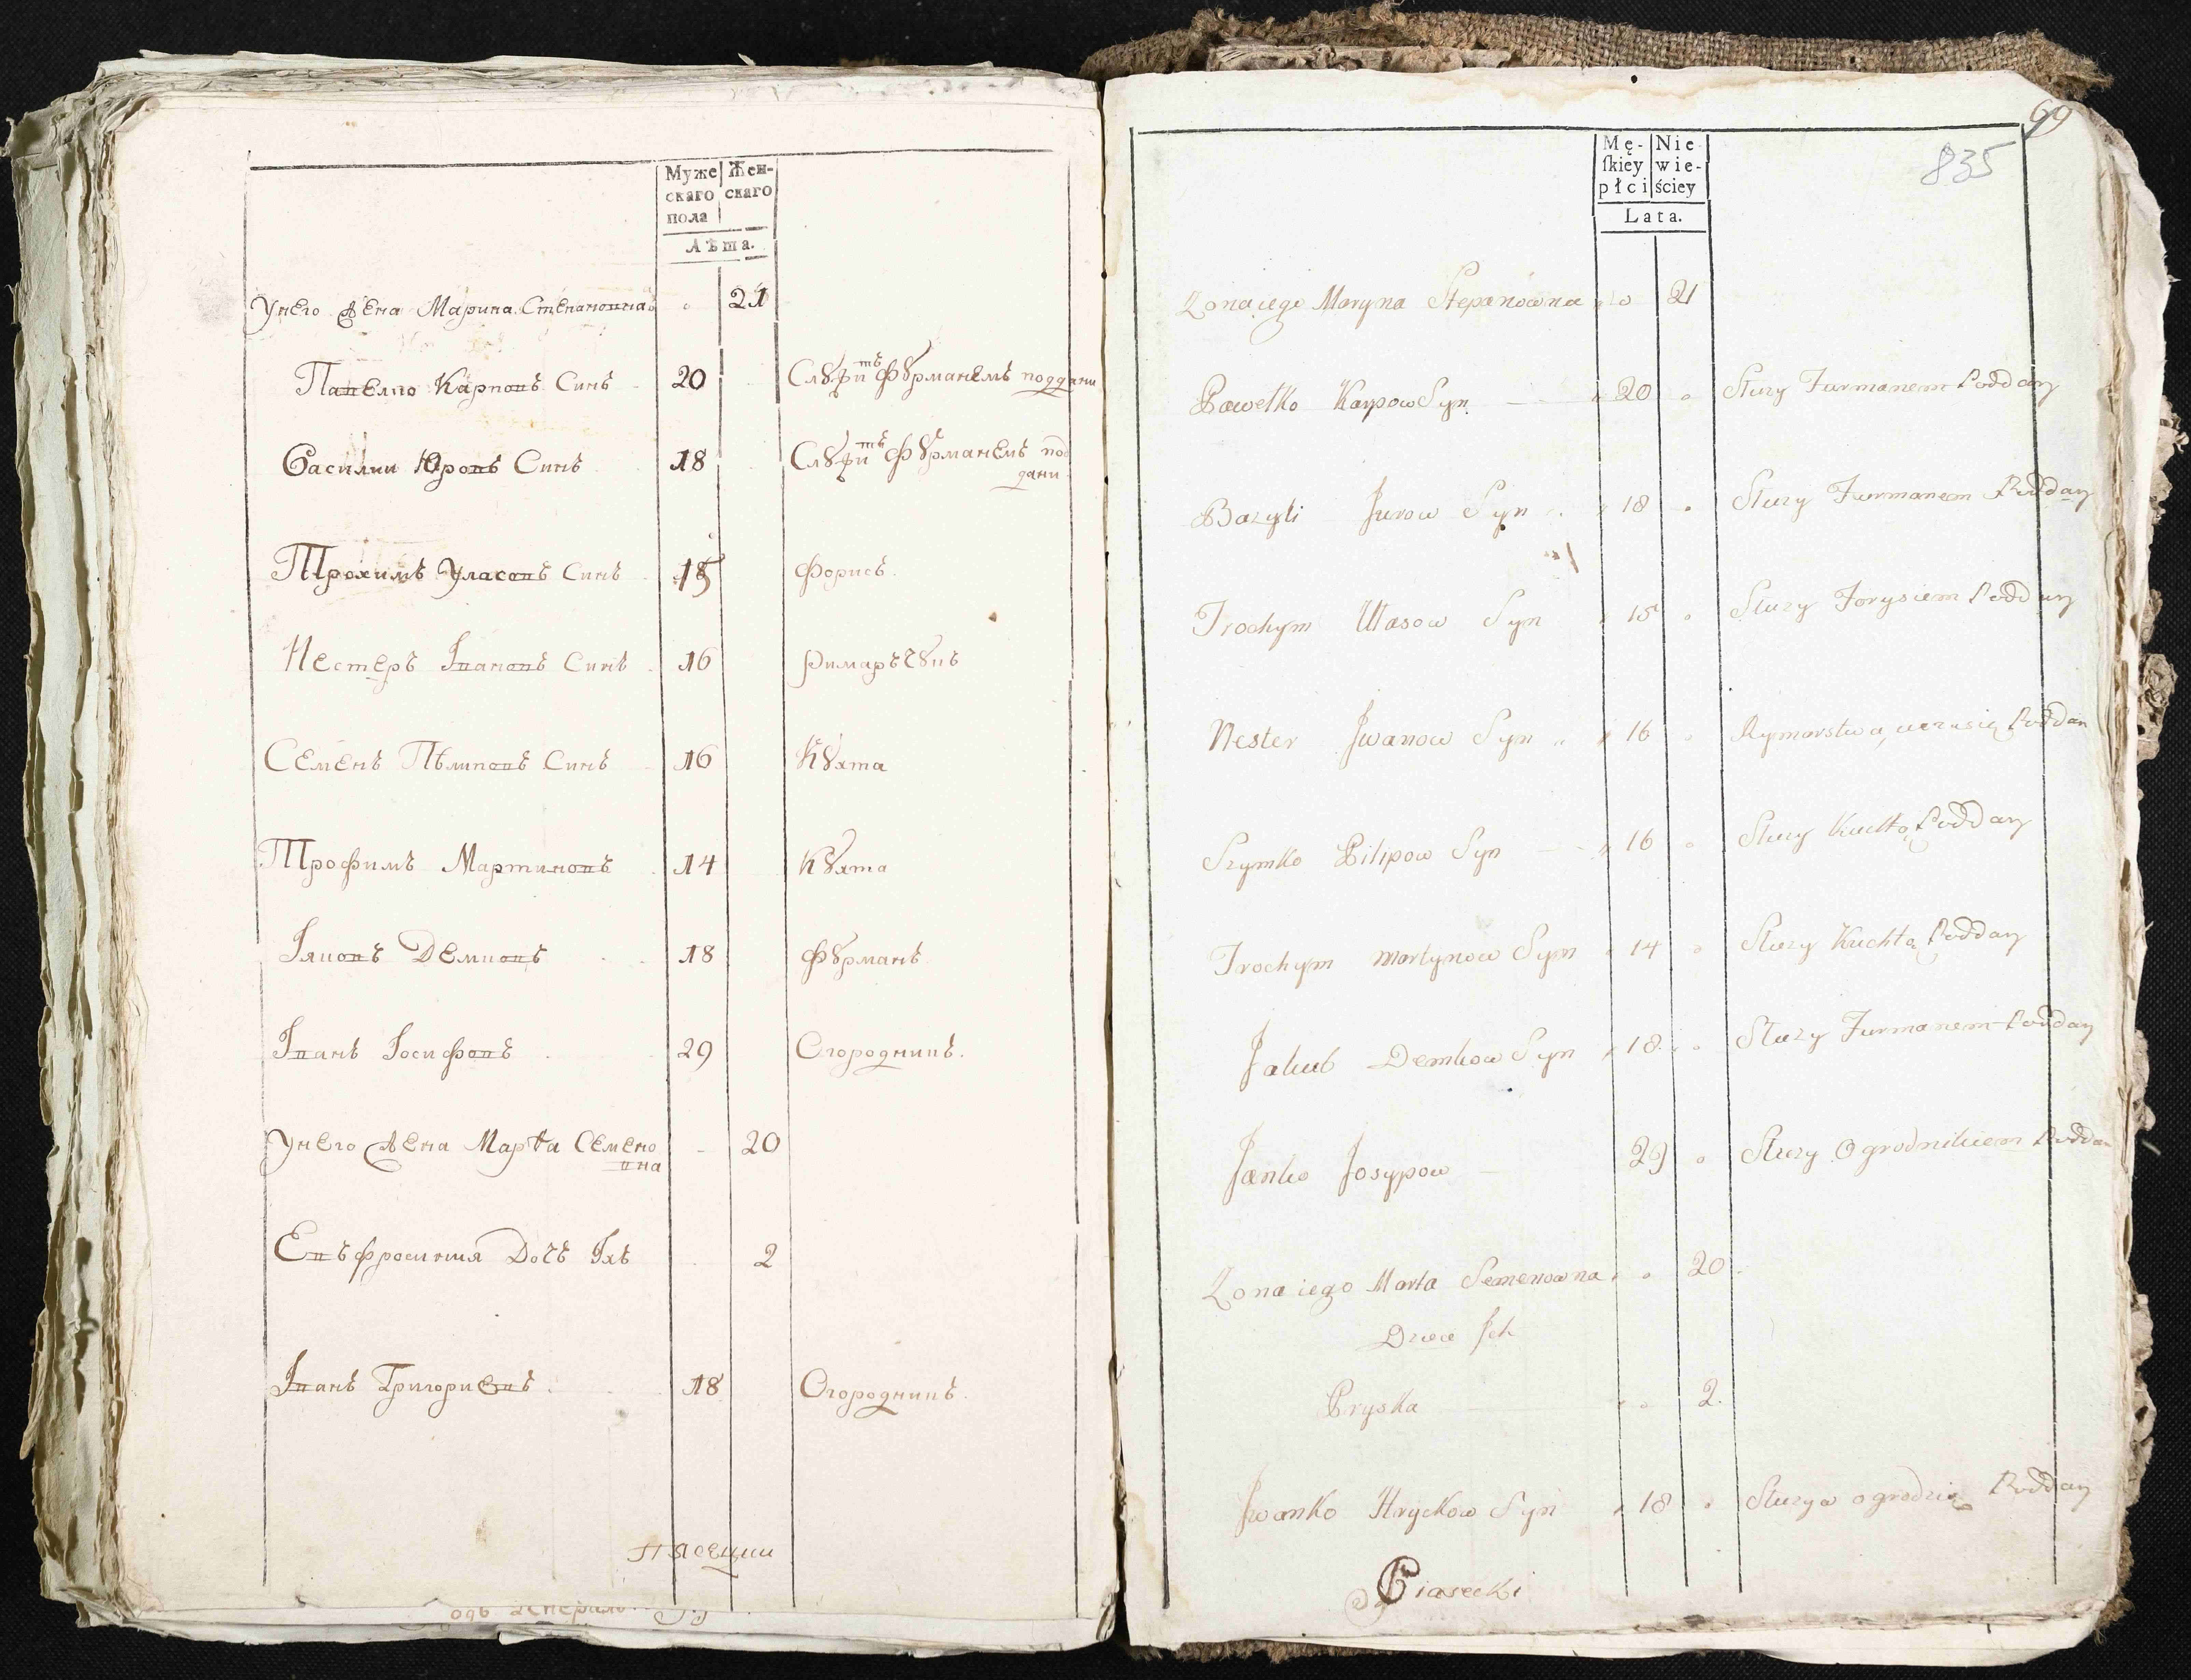 Муже
скаго
пола
Жен-
скаго
Лѣта.
Унего Жена Марина Степановна 21
Павелко Карповъ Синъ 20 Служитъ фурманемъ поддани
Василии Юровъ Синъ 18 Служитъ фурманемъ под
дани
Трохимъ Уласовъ Синъ 15 форисъ
Нестеръ Івановъ Синъ 16 римарьчукъ
Семенъ Пѣлиповъ Синъ 16 Кухта
Трофимъ Мартиновъ 14 Кухта
Іяковъ Демковъ 18 фурманъ
Іванъ Іосифовъ 29 Огородникъ.
Унего Жена Марѳа Семено
вна 20
Евъфросиния Дочъ Іхъ 2
Іванъ Григориевъ 18 Огородникъ.
Пясецки
69
835
Mę-
ſkiey
płci
Nie
wie-
ściey
Lata.
Zona iego Maryna Stepanowna 21
Pawełko Karpow Syn 20 Słuzy Furmanem Poddany
Bazyli Jurow Syn 18 Słuzy Furmanem Poddany
Trochym Ułasow Syn 15 Słuzy Forysiem Poddany
Nester Jwanow Syn 16 Rymarstwa uczy się Poddan
Szymko Pilipow Syn 16 Słuzy Kuchtą Poddany
Trochym Martynow Syn 14 Słuzy Kuchtą Poddany
Jakub Demkow Syn 18 Słuzy Furmanem Poddany
Janko Josypow 29 Słuzy Ogrodnikiem Poddan
Zona iego Marta Semenowna 20
Jch
Pryska 2.
Jwanko Hryckow Syn 18 Słuzy w ogrodzie Poddany
Piasecki